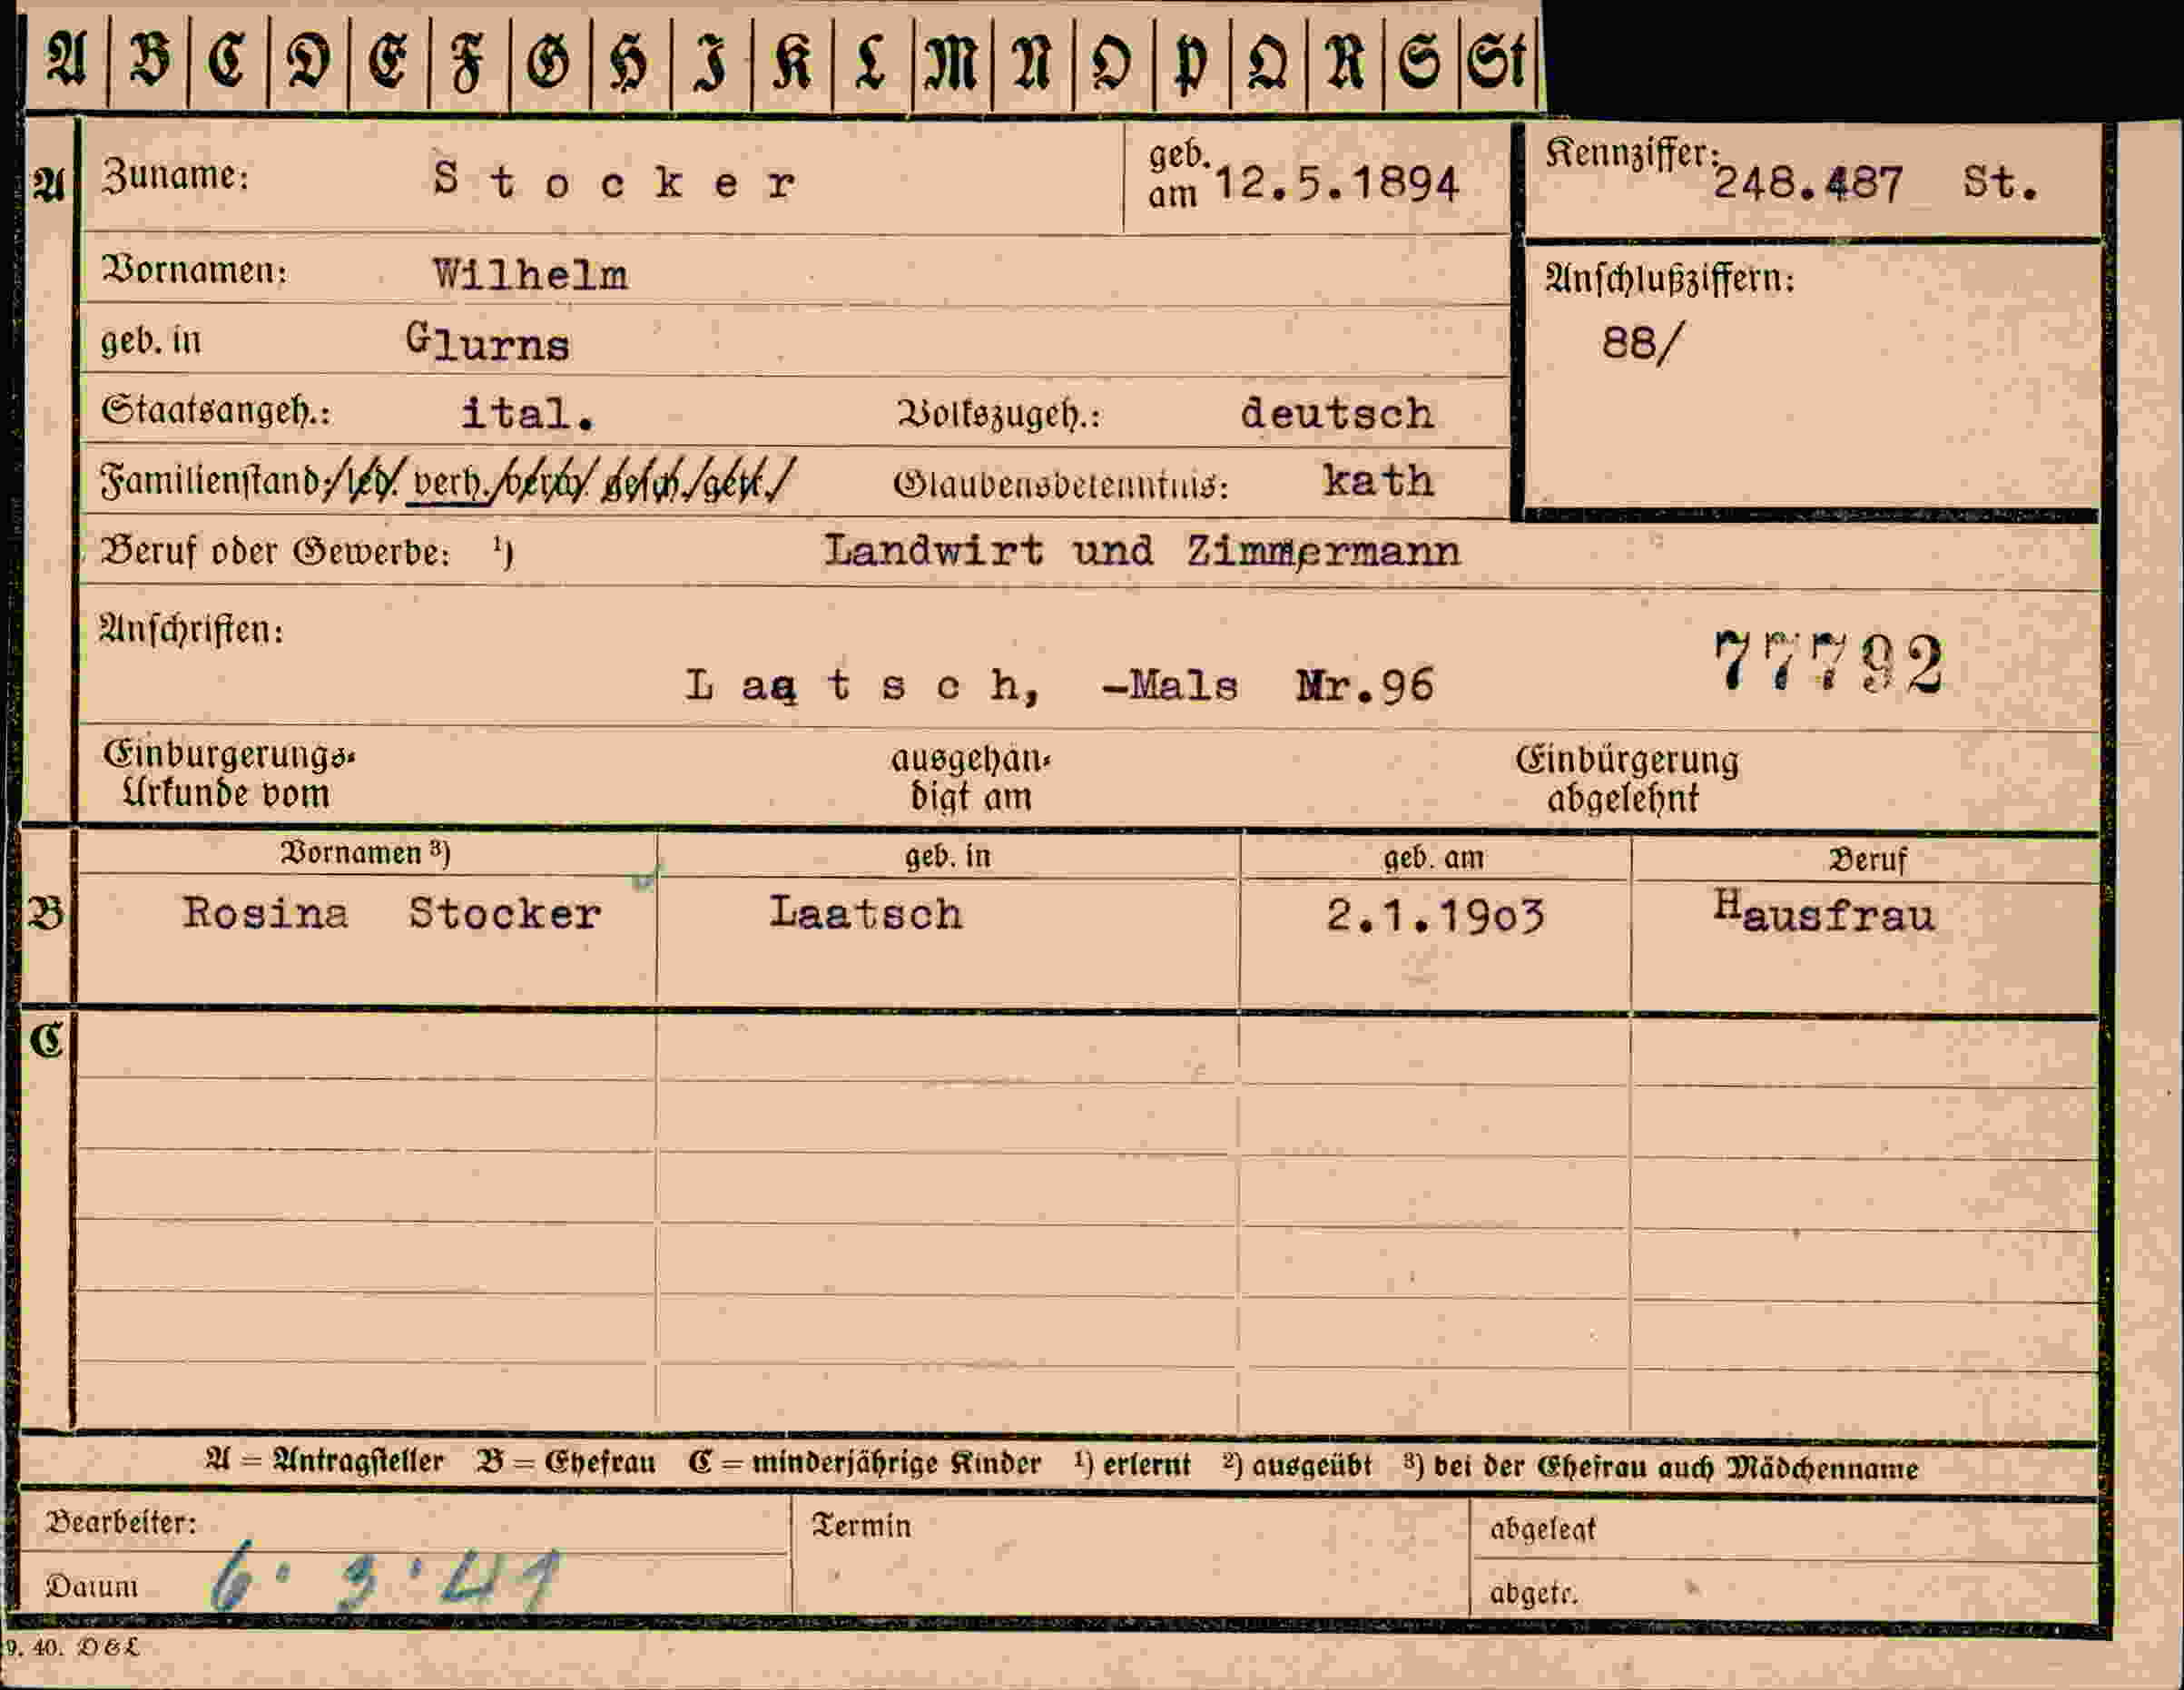 A B C D E F G H I K L M N O P Q R S St
A Zuname: Stocker geb. am 12.5.1894 Kennziffer: 248.487 St.
Vornamen: Wilhelm Anschlußziffern:
geb. in Glurns 88/
Staatsangeh.: ital. Volkszugeh.: deutsch
Familienstand: led. verh. verw. gesch. getr. Glaubensbekenntnis: kath
Beruf oder Gewerbe: ¹) Landwirt und Zimmermann
Anschriften: 77792
Laatsch, -Mals Nr.96
Einbürgerungs- ausgehän- Einbürgerung
Urkunde vom digt am abgelehnt
Vornamen ³) geb. in geb. am Beruf
B Rosina Stocker Laatsch 2.1.1903 Hausfrau
C
A = Antragsteller B = Ehefrau C = minderjährige Kinder ¹) erlernt ²) ausgeübt ³) bei der Ehefrau auch Mädchenname
Bearbeiter: Termin abgelegt
Datum 6. 3. 41 abgetr.
9. 40. DGL